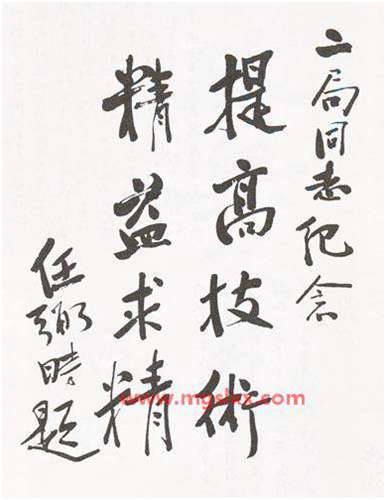 二局同志纪念
提高技術
精益求精
任弼时題
www.mgslxx.com